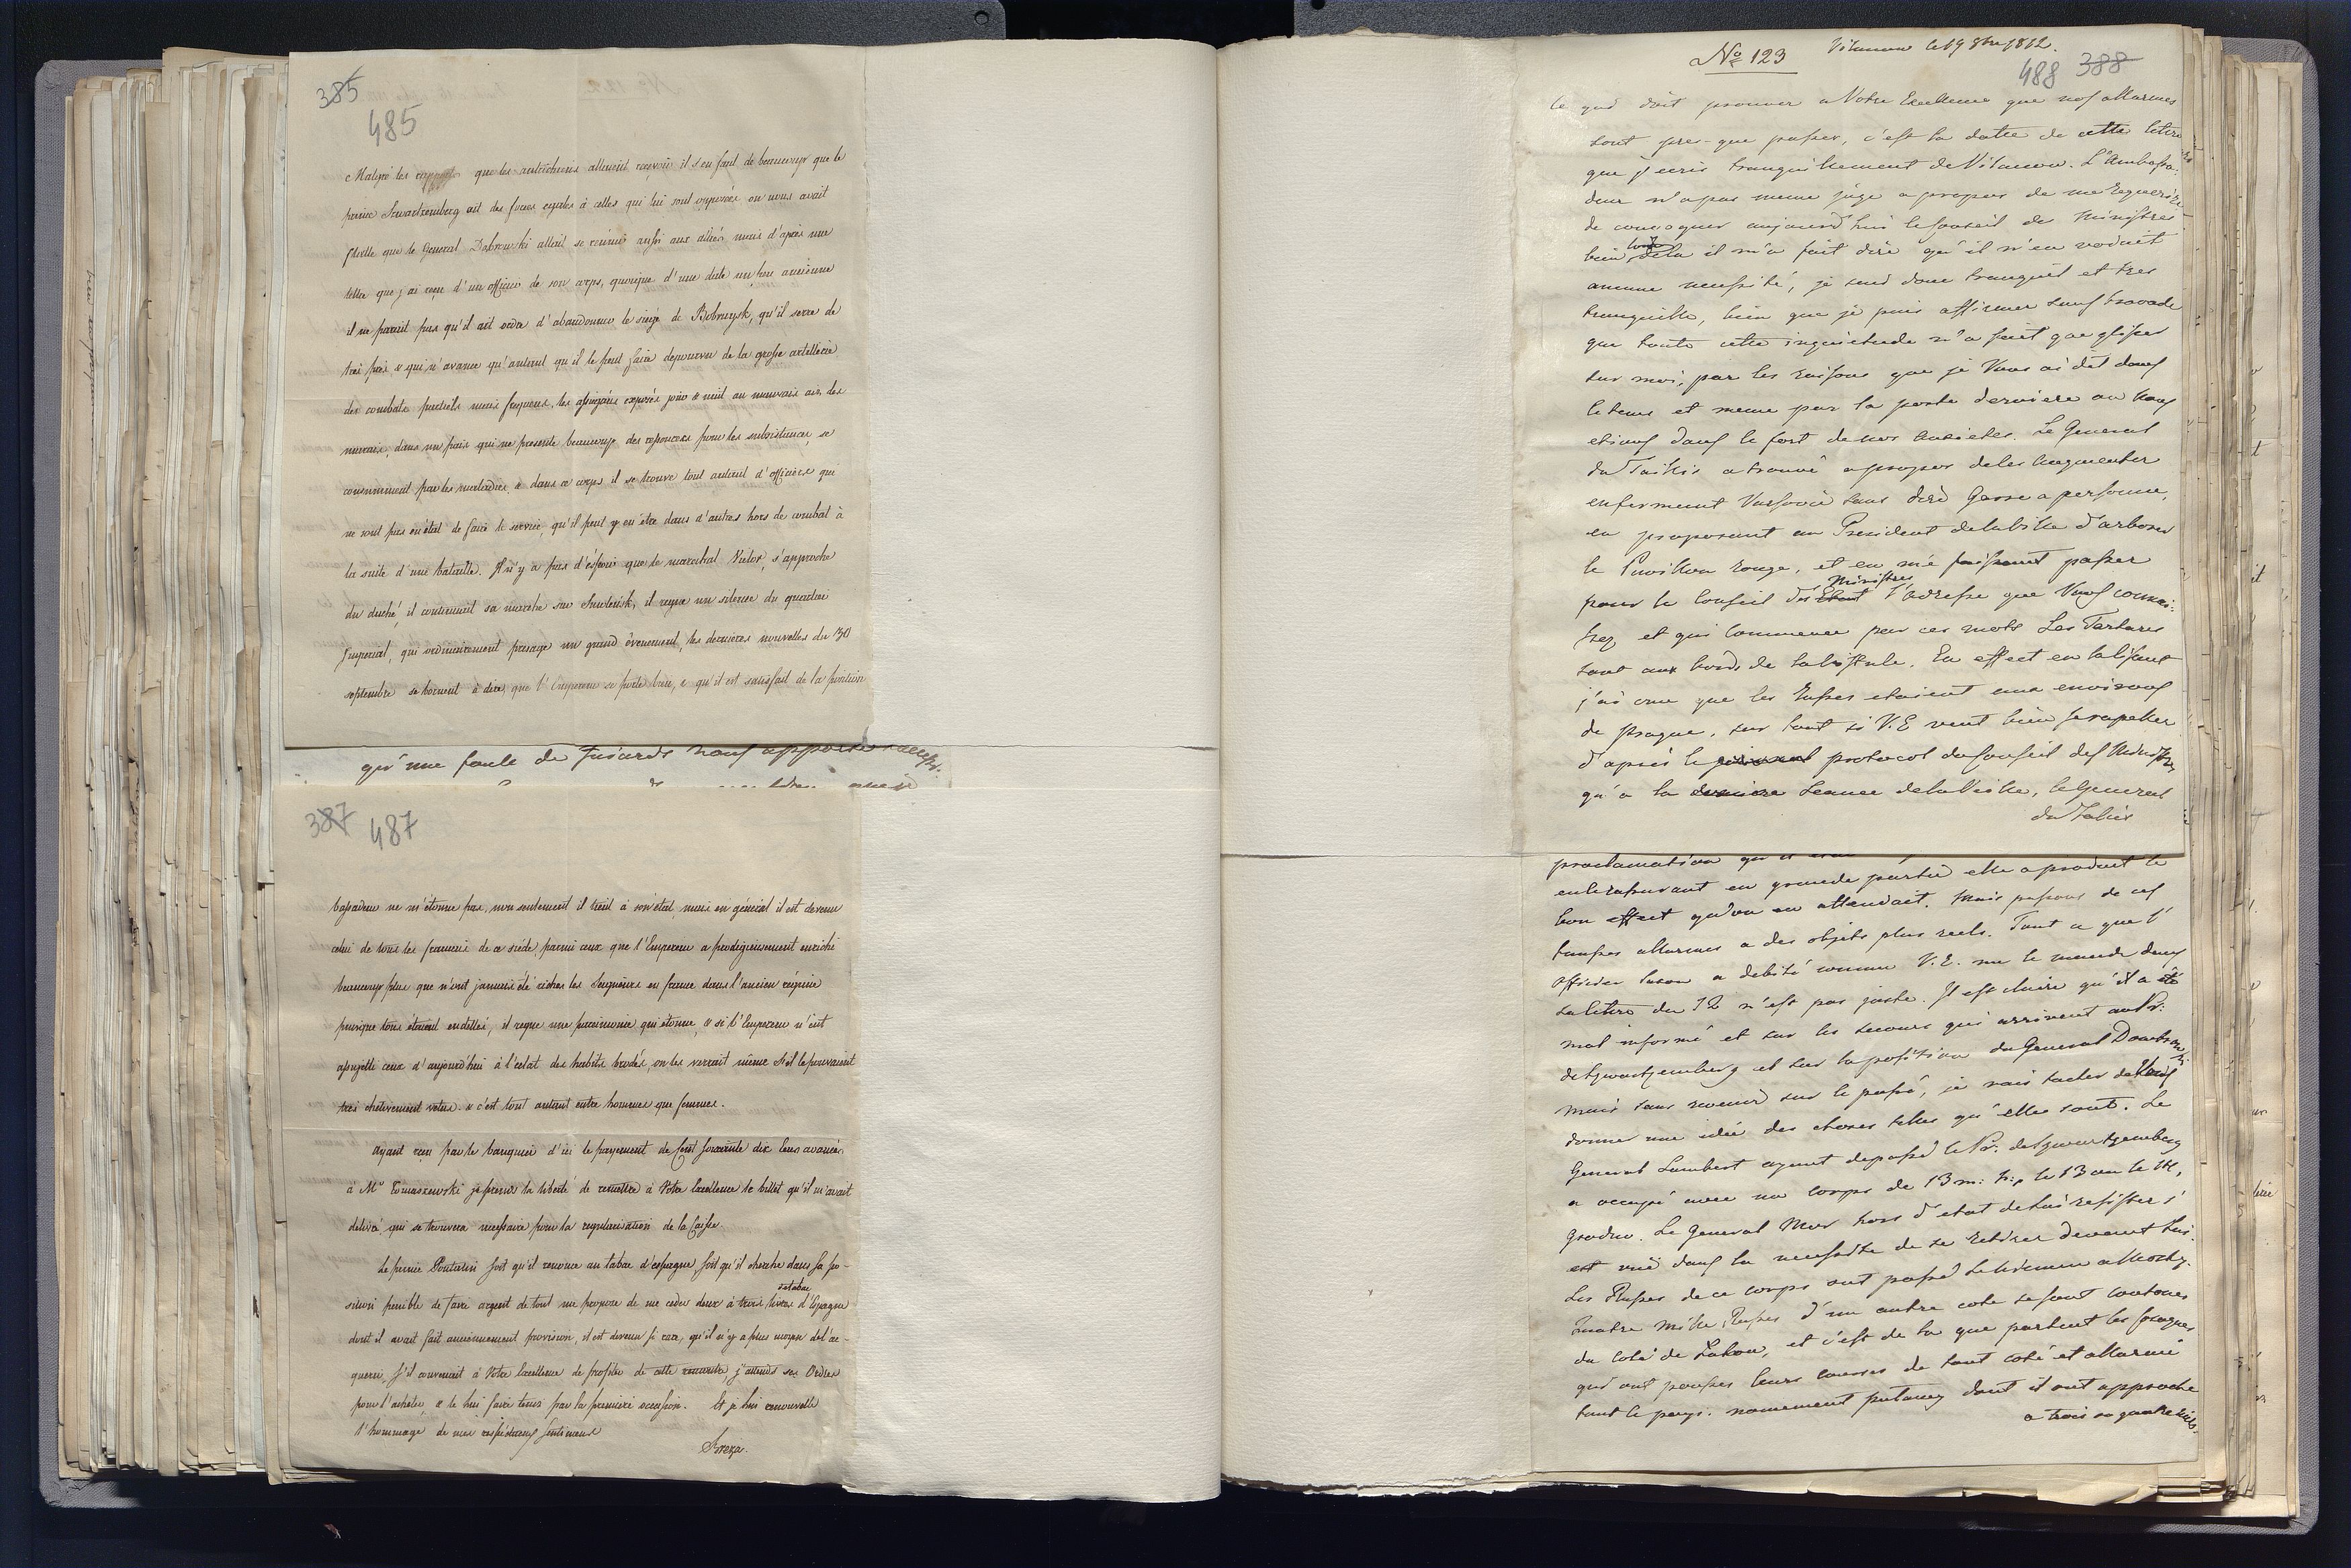 385
485
Malgré les que les autrichiens allaient reçevoir il s'en faut de beaucoup que le
prince Swartzemberg ait des forces egales à celles qui lui sont opposées on nous avait
flatté que le General Dabrowski allait se reunir aussi aux alliés mais d'après une
lettre que j'ai reçue d'un officier de son corps, quoique d'une date un peu ancienne
il ne parait pas qu'il ait ordre d'abandonner le siege de Bobruysk, qu'il serre de
très près & qui n'avance qu'autant qu'il le peut faire depourvu de la grosse artellerie
des combats partiels mais frequens, les assiegeans exposés jour & nuit au mauvais air des
marais, dans un païs qui ne presente beaucoup des resources pour les subsistances, se
consumment par les maladies, & dans ce corps il se trouve tout autant d'officiers qui
ne sont pas en état de faire le service, qu'il peut y en être dans d'autres hors de combat à
la suite d'une bataille. Il n'y a pas d'espoir que le marechal Victor, s'approche
du duché, il continuait sa marche sur Smolensk, il regne un silence du quartier
Imperial, qui ordinairement presage un grand évenement, les dernieres nouvelles du 30
septembre se bornent à dire, que l'Empereur se porte bien, & qu'il est satisfait de la position
qu'une foule de fuiards nous apporte
387 487
bassadeur ne m'étonne pas, non seulement il tient à son état, mais en géneral il est devenu
celui de tous les francais de ce siécle, parmi ceux que l'Empereur a prodigieusement enrichi
beaucoup plus que n'ont jamais été riches les Seigneurs en france dans l'ancien régime
puisque tous étaient endettés, il regne une parcimonie qui étonne, & si l'Empereur n'eut
assujetti ceux d'aujourd'hui à l'éclat des habits brodés, on les verrait même s'ils le pouvaient
très chetivement vetus. & c'est tout autant entre hommes que femmes.
Ayant reçu par le banquier d'ici le payement de Cent soixante dix avancés
à Mr Tomaszewski je prens la liberté de remettre à Votre Excellence le billet qu'il m'avait
delivré, qui se trouvera necessaire pour la regularisation de la Caisse
Le prince soit qu'il renonce au tabac d'espagne, soit qu'il cherche dans sa po-
sition penible de faire argent de tout me propose de me ceder deux à trois livres de tabac d'Espagne
dont il avait fait anciennement provision, il est devenu si rare, qu'il n'y a plus moyen de l'ac-
querir, s'il convenait à Votre Excellence de profiter de cette rencontre, j'attends ses Ordres
pour l'acheter, & le lui faire tenir par la premiere occasion. Et je lui renouvelle
l'hommage de mes respectueux sentimens
Breza.
No 123 Vilanow le 19 8bre 1812.
488 388
Ce qui doit prouver a Votre Excellence que nos allarmes
sont pres-que passés, c'est la datte de cette lettre
que j'ecris tranquillement de Vilanow. L'Ambassa-
deur n'a pas meme jugé a propos de me requerire
de convoquer aujourd'hui le Conseil de Ministres
bien loin de la il m'a fait dire qu'il n'en voiait
aucune necessité, je suis donc tranquil et tres
tranquille, bien que je puis affirmer sans bravade
que toute cette inquietude n'a fait que glisser
sur moi, par les raisons que je Vous ai dit dans
le tems et meme par la poste derniere ou nous
etions dans le fort de nos anxietés. Le General
du Taillis a trouvé a propos de les augmenter
enfermant Varsovie sans dire Garre a personne,
en proposant au President de la Ville d'arborer
le Pavillon rouge, et en me faissant passer
pour le Conseil des Ministres l'adresse que Vous connai-
trez et qui commence par ces mots Les Tartares
sont aux bords de la Vistule. En effect en la lisant
j'ai crue que les Russes etaient aux environs
de prague, sur tout si V.E veut bien se rapeller
d'après le protocol du Conseil des Ministres
qu'a la derniere seance de la Veille, le General
du Talis
proclamation
en la rassurant en grande partie elle a produit le
bon effect qu'on en attendait. Mais passons de ces
fausses allarmes a des objets plus reels. Tout ce que l'
officier Saxon a debité comme V.E. me le mande dans
sa lettre du 12 n'est pas juste. Il est claire qu'il a été
mal informé et sur les secours qui arrivent au Pr:
de Szwartzemberg et sur la position du General Dombrowski
mais sans revenir sur le passé, je vais tacher de Vous
donner une idée des choses telles qu'elles sont. Le
General Lambert ayant depassé le Pr: de Szwartzemberg
a occupé avec un corps de 13 m: h:, le 13 ou le 14,
Grodno. Le General Mor hors d'etat de lui resister s'
est vüe dans la necessite de se retirer devant lui.
Les Russes de ce corps ont passé le Niemen a Mosty.
Quatre mille Russes d'un autre cote se sont
du coté de Lukow, et c'est de la que partent les Cosaques
qui ont pousses leurs courses de tout coté et allarmé
tout le pays. nomement pulawy dont il ont approché
a trois ou quatre